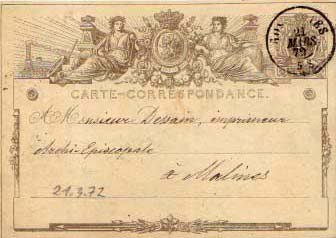 21
MARS
5 S
CARTE-CORRESPONDANCE.
A Monsieur Dessain, imprimeur
Archi-Episcopale
à Malines
21.3.72